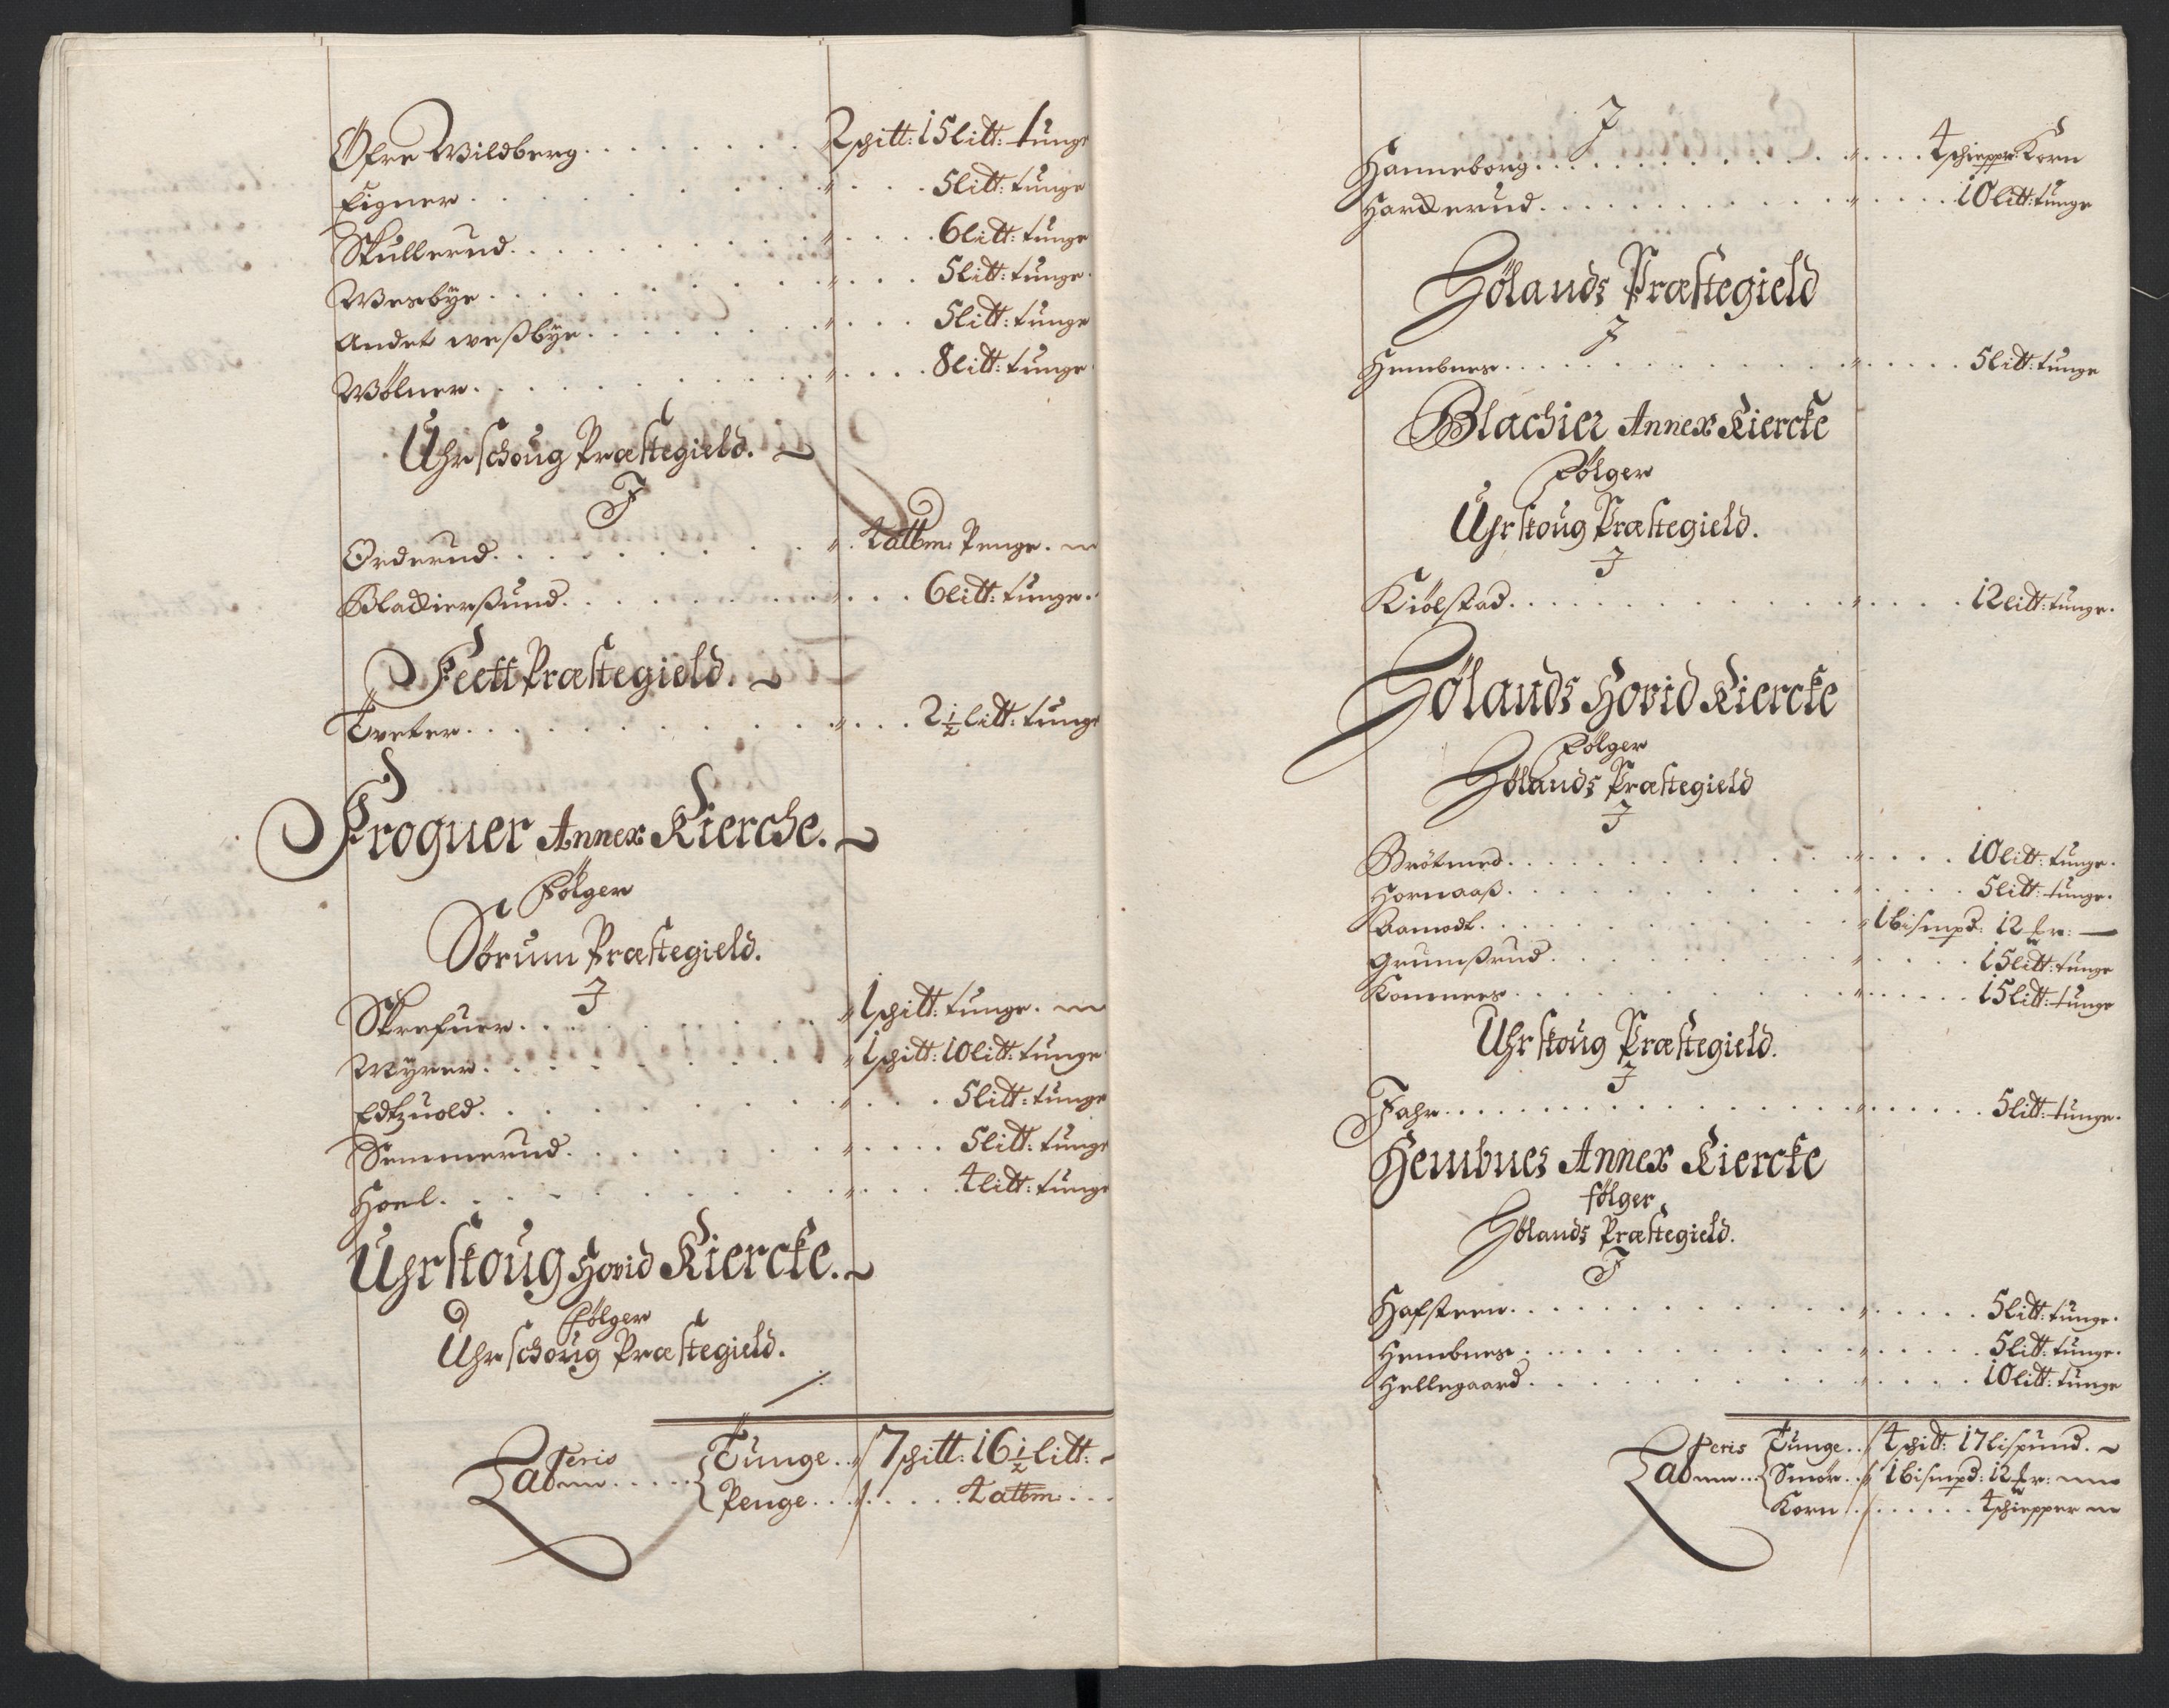 Øfre Wildberg . . . . . . . . " 2 skitt: 15 litt: tunge
Eigner . . . . . . . . " . . . 5 litt: tunge
Skullerud . . . . . . . . " . . . 6 litt: tunge
Wesbÿe . . . . . . . . " . . . 5 litt: tunge
Andet weßbÿe . . . . . . . . " . . . 5 litt: tunge
Wølner . . . . . . . . " . . . 8 litt: tunge
Uhrschoug Præstegield.
J
Orderud . . . . . . . . " . 4 alb̄m: Penge.
Blackierßund . . . . . . . . " . . . 6 litt: tunge.
Feett Præstegield.
Tveter . . . . . . . . " . . . 2½ litt: tunge
Frogner Annex Kierche.
Følger
Sørum Præstegield.
J
Skrefuer . . . . . . . . " 1 skitt: tunge.
Myrer . . . . . . . . " 1 skitt: 10 litt: tunge
Edtzuold . . . . . . . . " . . . 5 litt: tunge
Semmerud . . . . . . . . " . . . 5 litt: tunge
Hoel . . . . . . . . " . . . 4 litt: tunge
Uhrskoug Hovid Kiercke.
Følger
Uhrschoug Præstegield.
Lateris Tunge . . 7 skitt: 16½ litt:
Penge . . . . . 4 alb̄m: . . .
J
Hanneborg . . . . . . . . " . . . 4 schiepper Korn
Harckerud . . . . . . . . " . . . 10 litt: tunge
Hølands Præstegield
J
Hembnes . . . . . . . . " . . . 5 litt: tunge
Blachier Annex Kiercke
Følger
Uhrskoug Præstegield.
J
Kiølstad . . . . . . . . " . . . 12 litt: tunge.
Hølands Hovid Kiercke
Følger
Hølands Præstegield
J
Brøtmed . . . . . . . . " . . . 10 litt: tunge.
Hornaaß . . . . . . . . " . . . 5 litt: tunge.
Aamodt . . . . . . . . " 1 bismpd: 12 Mr:
Grumßrud . . . . . . . . " . . . 15 litt: tunge
Komnees . . . . . . . . " . . . 15 litt: tunge
Uhrskoug Præstegield.
J
Fahr . . . . . . . . " . . . 5 litt: tunge.
Hembnes Annex Kiercke
følger
Hølands Præstegield.
J
Hafsteen . . . . . . . . " . . . 5 litt: tunge.
Hembnes . . . . . . . . " . . . 5 litt: tunge.
Hellegaard . . . . . . . . " . . . 10 litt: tunge
Lateris Tunge . . 4 skitt: 17 lispund.
Smør . . 1 bismpd: 12 Mr:
Korn . . . . . . 4 schiepper